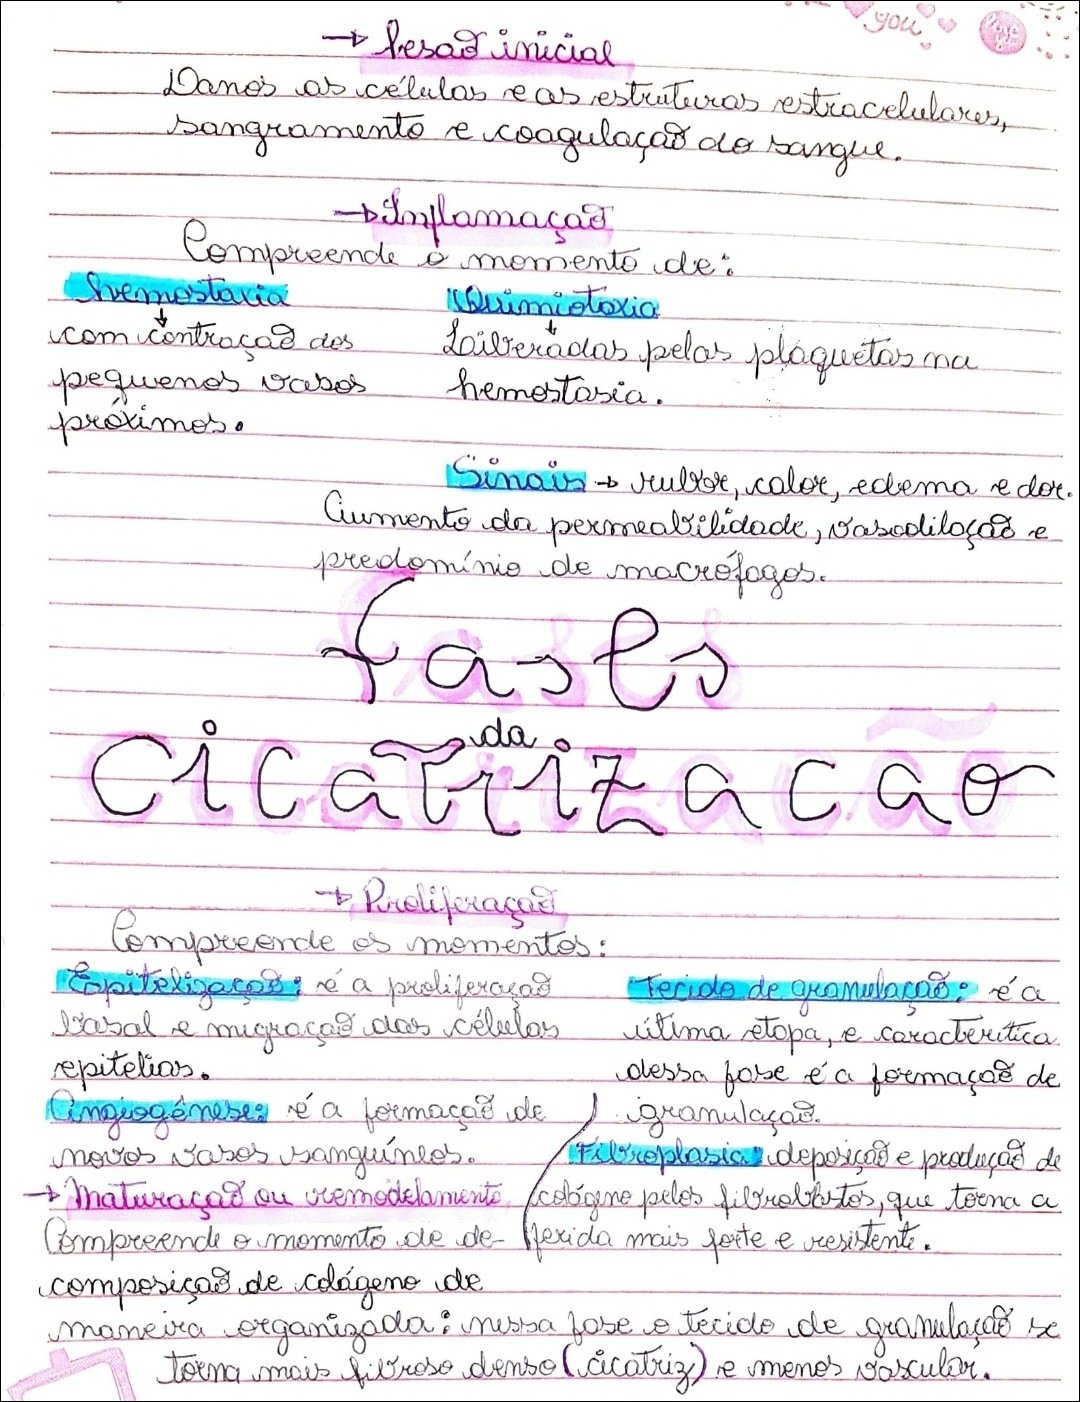 you
→ Lesão inicial
Danos as células e as estruturas estracelulares,
sangramento e coagulação do sangue.
→ Inflamação
Compreende o momento de:
hemostasia
com contração dos
pequenos vasos
próximos.
Quimiotaxia
Laiberadas pelas plaquetas na
hemostasia.
Sinais → rubor, calor, edema e dor.
Aumento da permeabilidade, vasodilação e
predomínio de macrófagos.
Fases
da
Cicatrizacão
→ Proliferação
Compreende os momentos:
Epitelização: é a proliferação
basal e migração das células
epitelias.
Angiogênese: é a formação de
novos vasos sanguíneos.
Tecido de granulação: é a
útima etapa, e caracterítica
dessa fase é a formação de
granulação.
Fibroplasia: deposição e produção de
colágeno pelos fibroblastos, que torna a
ferida mais forte e resistente.
→ Maturação ou remodelamento
Compreende o momento de de-
composição de colágeno de
maneira organizada: nessa fase o tecido de granulação se
torna mais fibroso denso (cicatriz) e menos vascular.